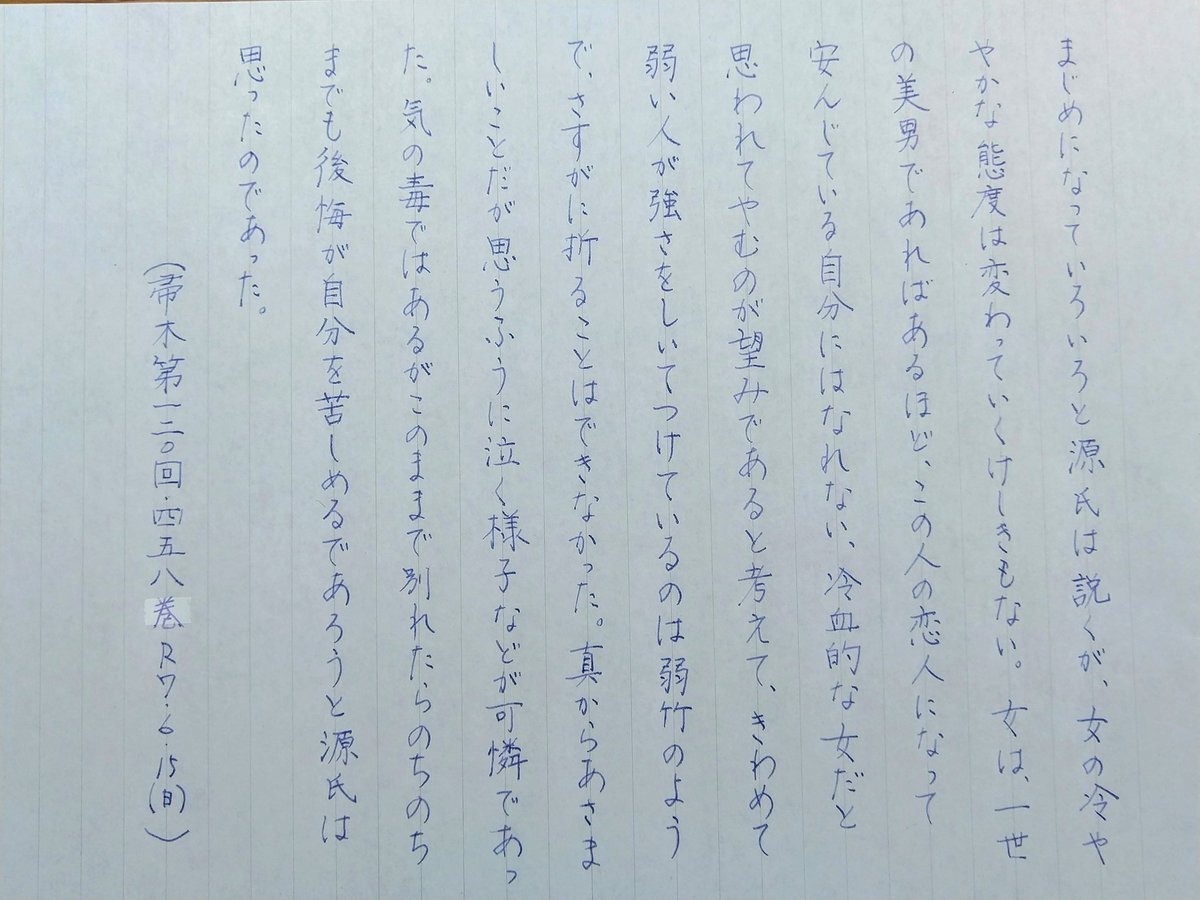 まじめになっていろいろと源氏は説くが、女の冷や
やかな態度は変わっていくけしきもない。女は、一世
の美男であればあるほど、この人の恋人になって
安んじている自分にはなれない、冷血的な女だと
思われてやむのが望みであると考えて、きわめて
弱い人が強さをしいてつけているのは弱竹のよう
で、さすがに折ることはできなかった。真からあさま
しいことだが思うふうに泣く様子などが可憐であっ
た。気の毒ではあるがこのままで別れたらのちのち
までも後悔が自分を苦しめるであろうと源氏は
思ったのであった。
(帚木第一二〇回・四五八巻R7・6・15(日))